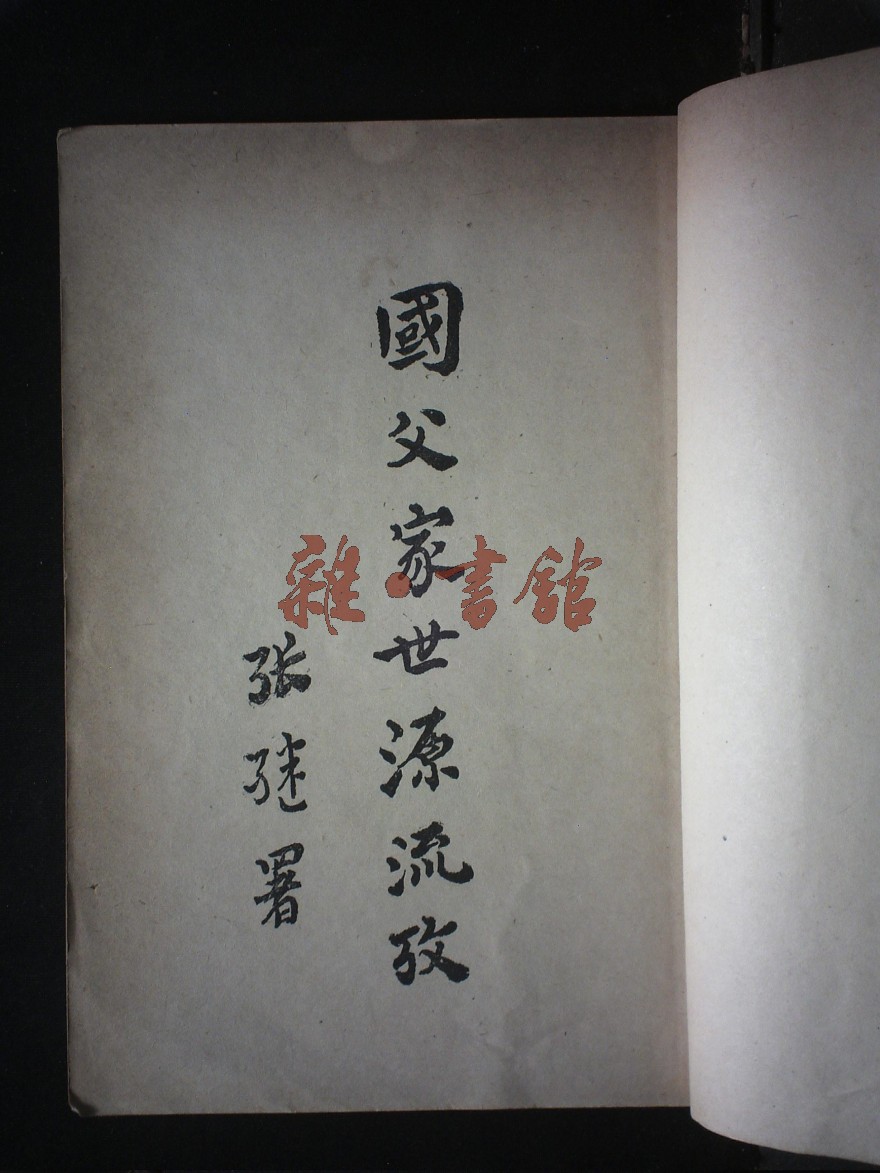 國父家世源流攷
张继署
雜·書館